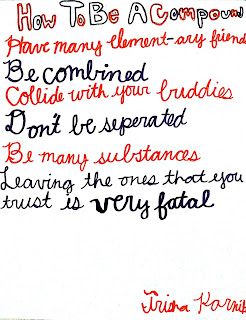 How To Be A Compound
Have many element-ary friend
Be combined
Collide with your buddies
Don't be seperated
Be many substances
Leaving the ones that you
trust is very fatal
Trisha Karnik